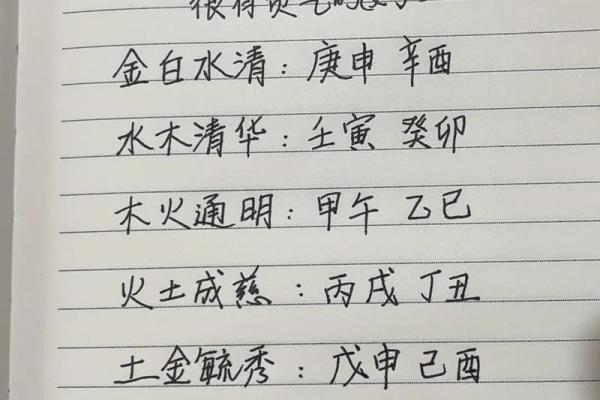 很有贵气的
金白水清：庚申 辛酉
水木清华：壬寅 癸卯
木火通明：甲午 乙巳
火土成慈：丙戌 丁丑
土金毓秀：戊申 己酉